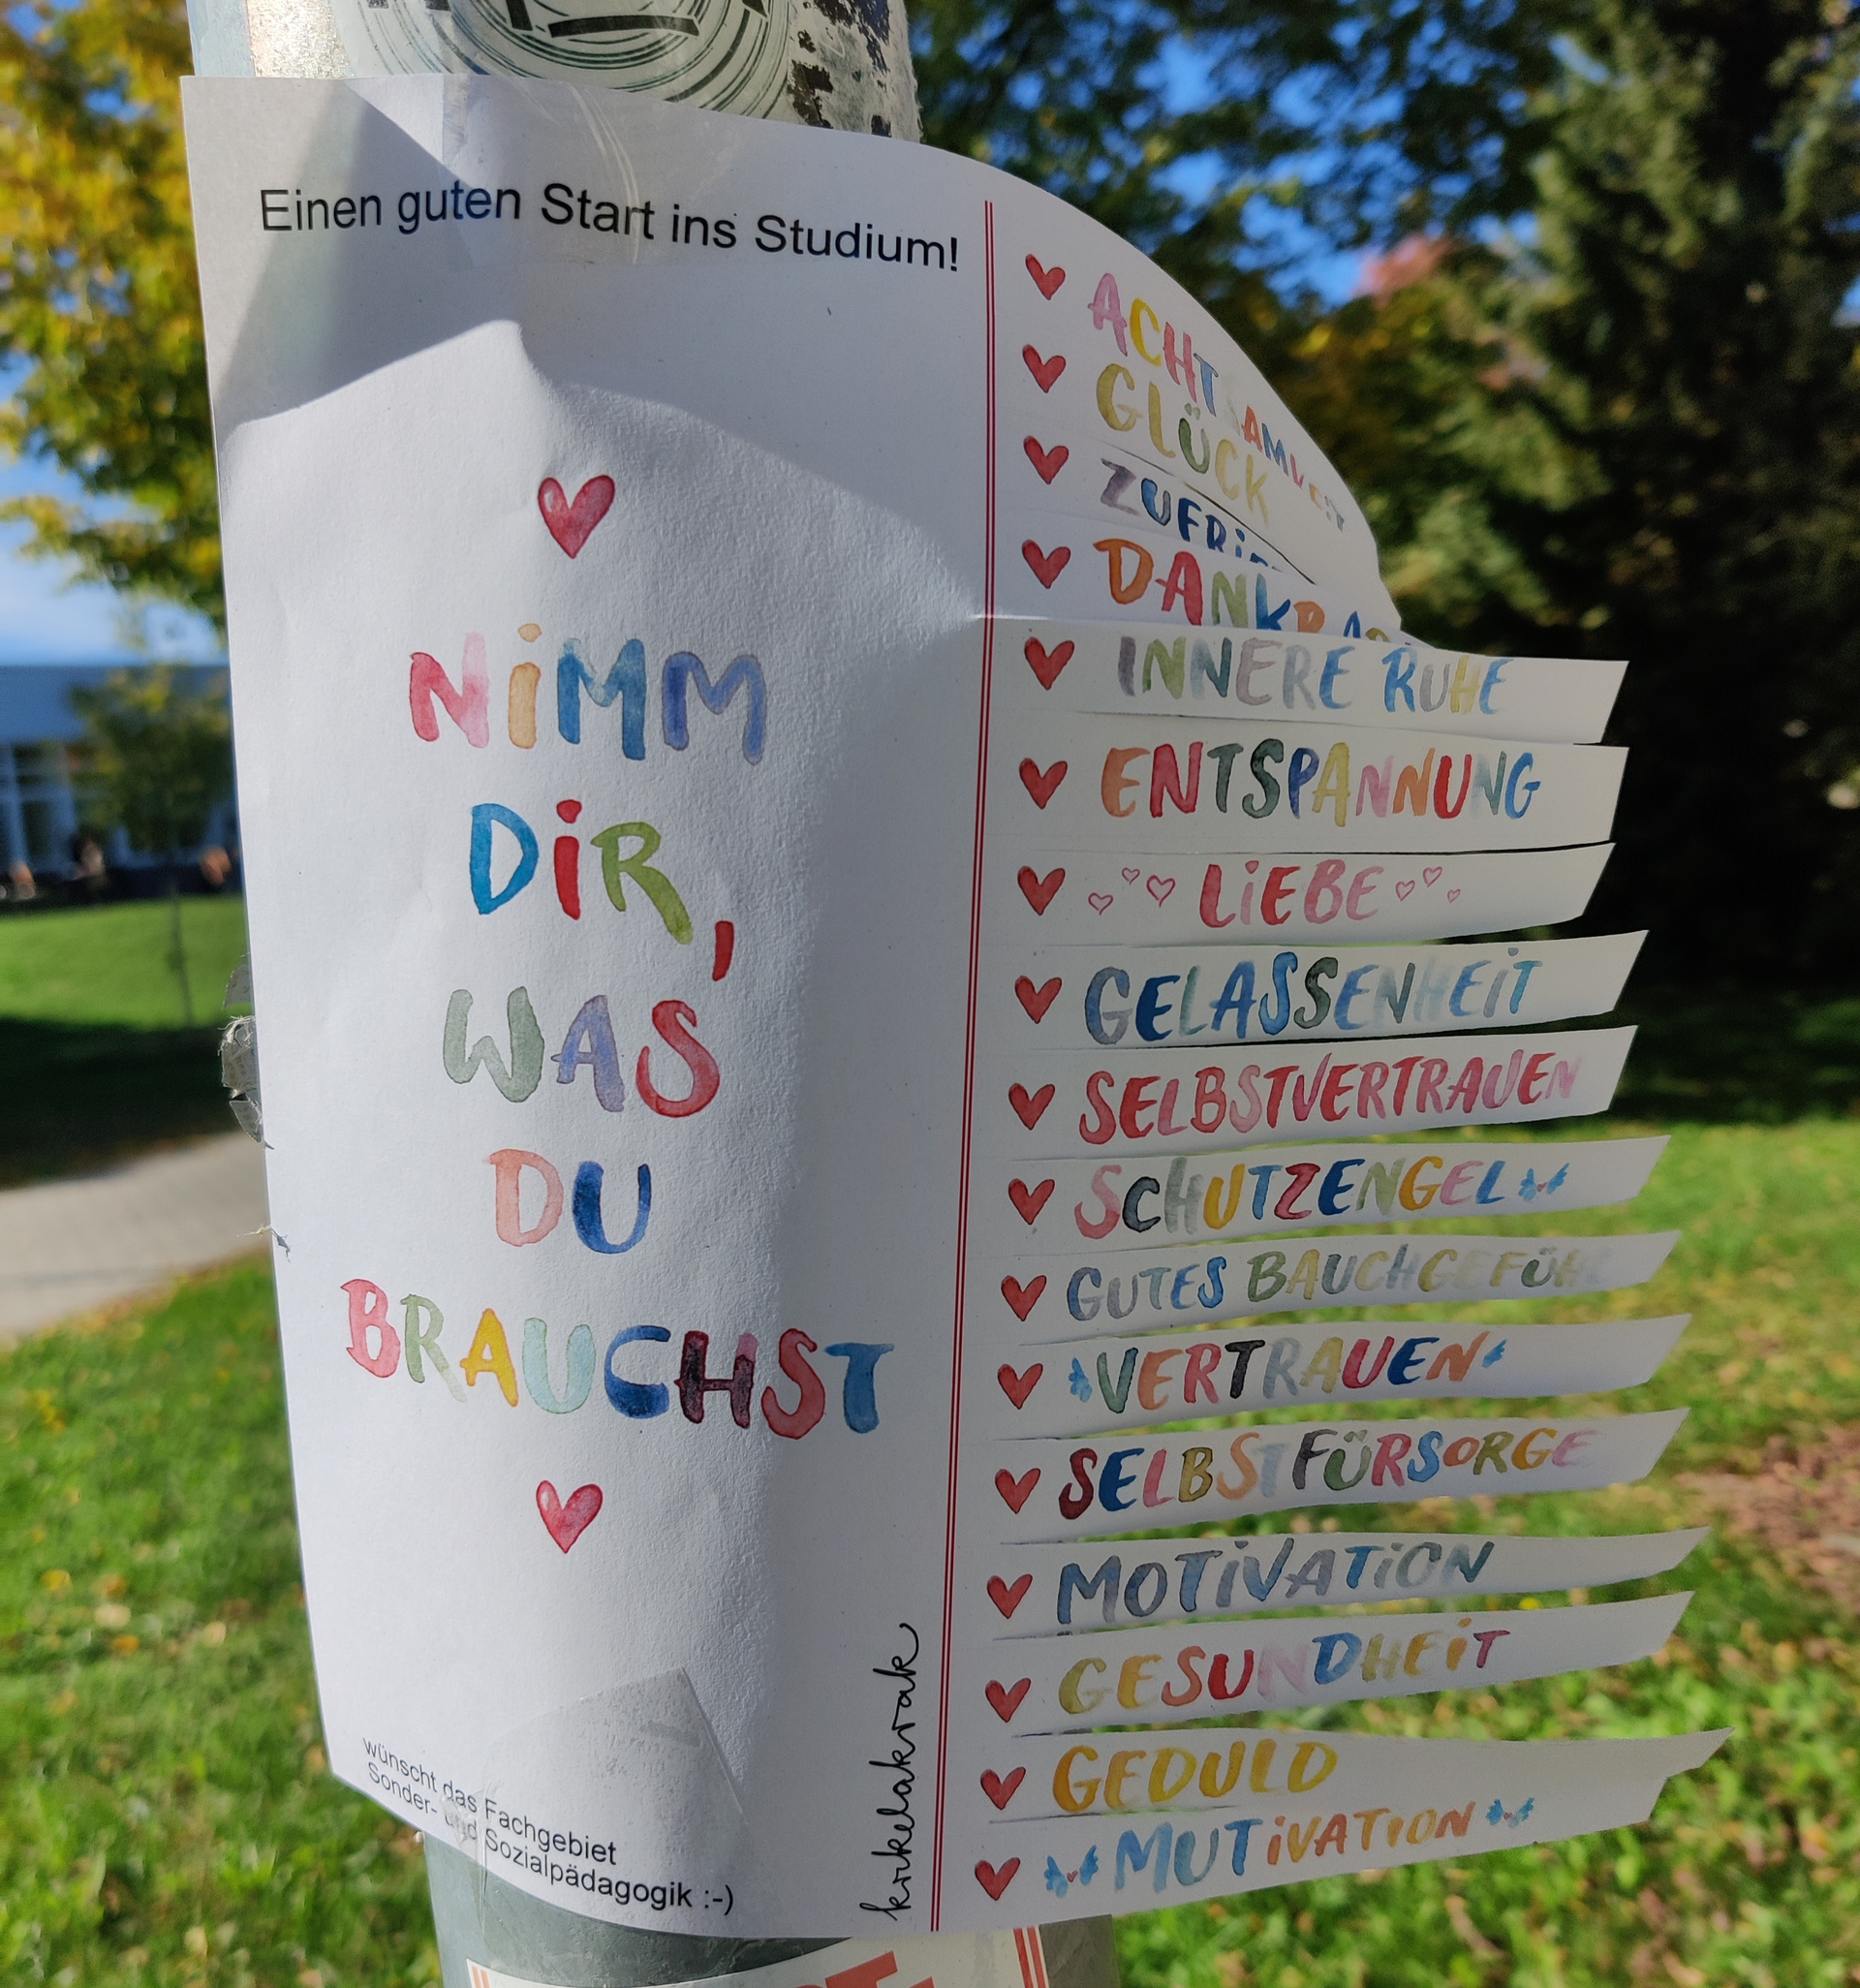 Einen guten Start ins Studium!
NIMM
DIR,
WAS
DU
BRAUCHST
wünscht das Fachgebiet
Sonder- und Sozialpädagogik :-)
krikelakrak
ACHTSAMKEIT
GLÜCK
INNERE RUHE
ENTSPANNUNG
LIEBE
GELASSENHEIT
SELBSTVERTRAUEN
SCHUTZENGEL
GUTES BAUCHGEFÜHL
VERTRAUEN
SELBSTFÜRSORGE
MOTIVATION
GESUNDHEIT
GEDULD
MUTIVATION